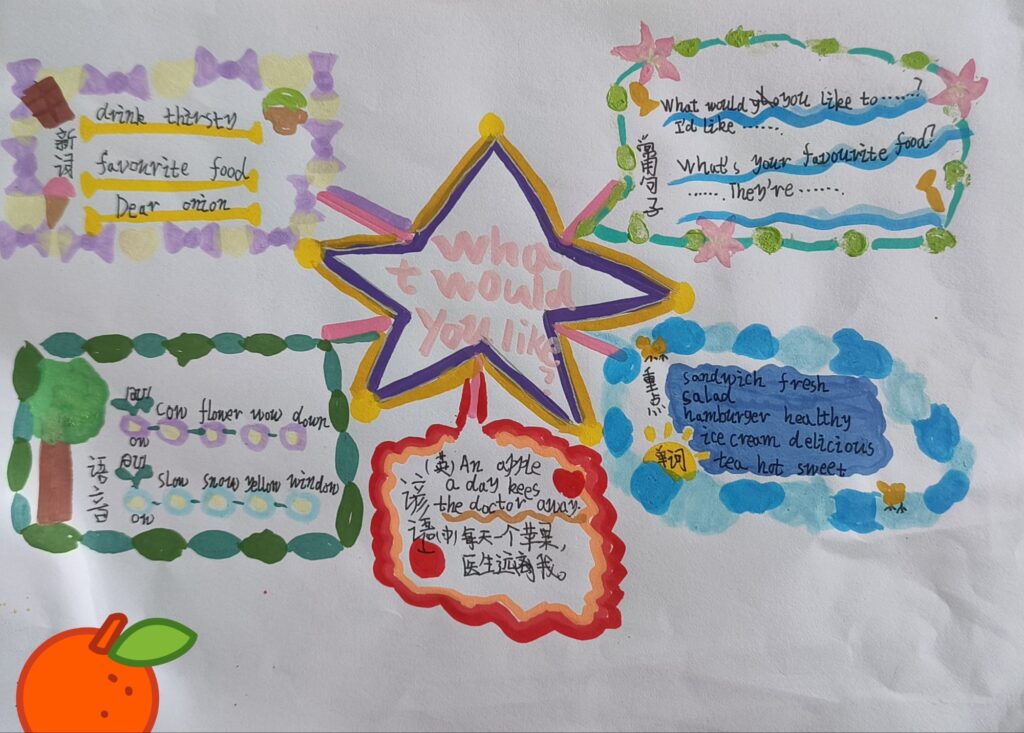 新词
drink thirsty
favourite food
Dear onion
常用句子
What would you like to ......?
I'd like ......
What's your favourite food?
...... They're ......
wha
t would
you like
?
语音
cow flower wow down
slow snow yellow window
谚语
(英) An apple
a day kees
the doctor away.
(中) 每天一个苹果，
医生远离我。
重点
单词
sandwich fresh
salad
hamburger healthy
ice cream delicious
tea hot sweet